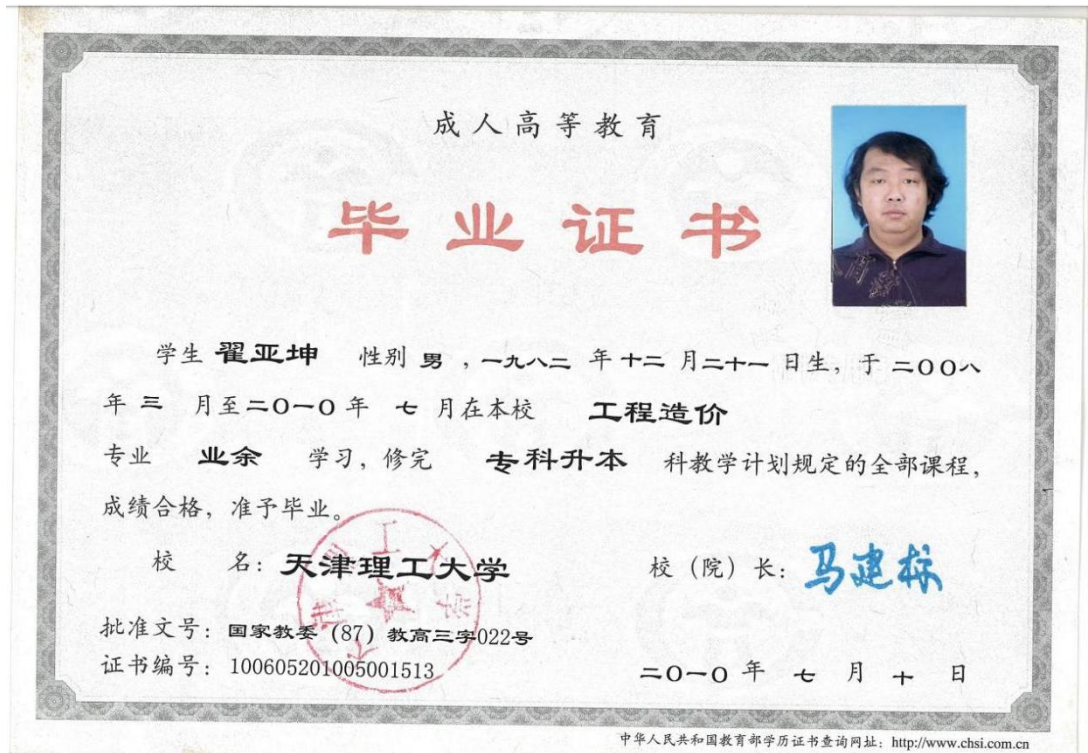 成人高等教育
毕业证书
学生 翟亚坤 性别 男 ，一九八二 年 十二 月二十一 日生，于 二OO八
年 三 月至二O一O 年 七 月在本校 工程造价
专业 业余 学习，修完 专科升本 科教学计划规定的全部课程，
成绩合格，准予毕业。
校 名：天津理工大学
校（院）长：马建标
批准文号：国家教委（87）教高三字022号
证书编号：100605201005001513
二O一O 年 七 月 十 日
中华人民共和国教育部学历证书查询网址：http://www.chsi.com.cn
天津理工大学